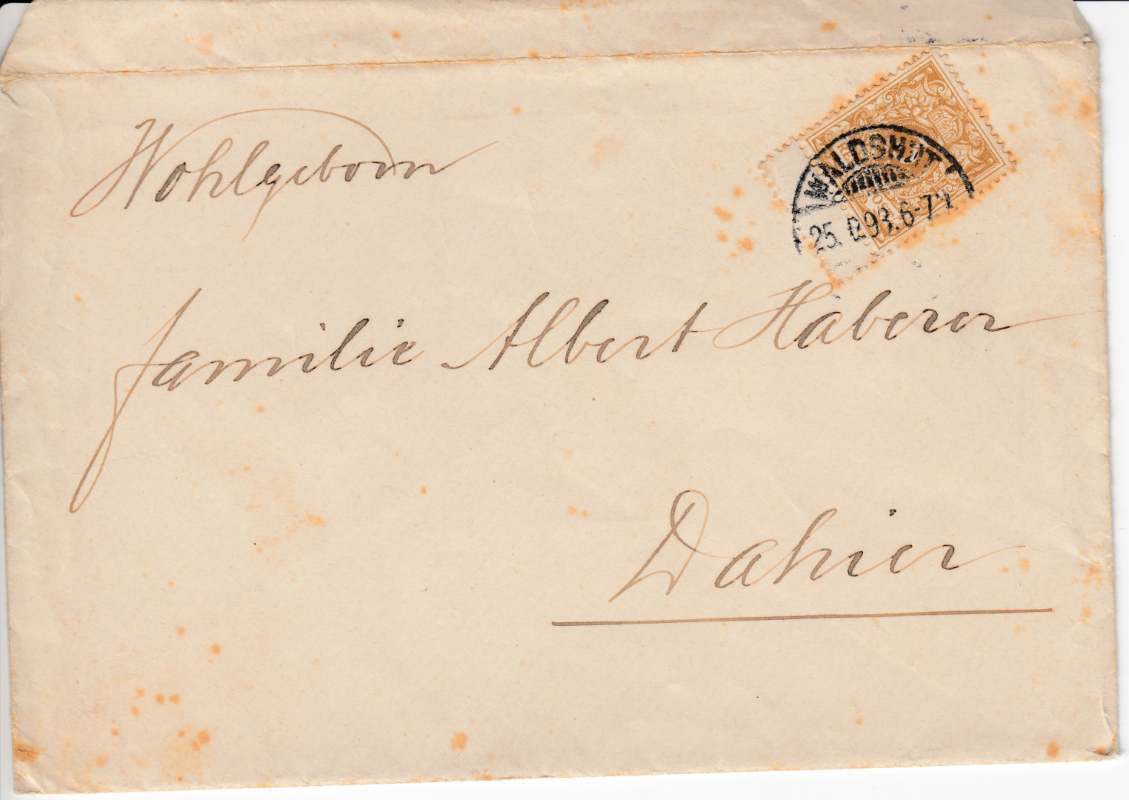 WALDSHUT
25. 93. 6-7
Wohlgeborn
Familie Albert Haberer
Dahier